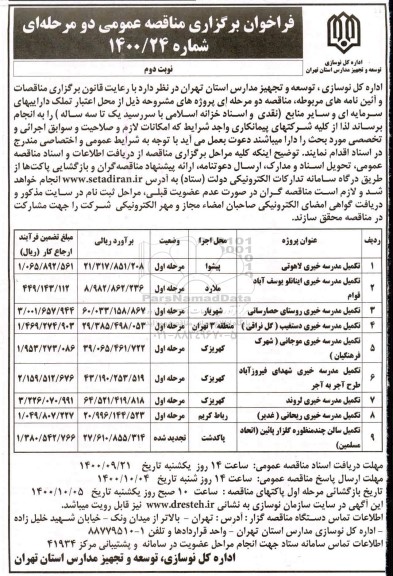 فراخوان برگزاری مناقصه عمومی دو مرحله‌ای
شماره ۱۴۰۰/۲۴
نوبت دوم
اداره کل نوسازی
توسعه و تجهیز مدارس استان تهران
اداره کل نوسازی ، توسعه و تجهیز مدارس استان تهران در نظر دارد با رعایت قانون برگزاری مناقصات
و آئین نامه های مربوطه، مناقصه دو مرحله ای پروژه های مشروحه ذیل از محل اعتبار تملک داراییهای
سرمایه ای و سایر منابع (نقدی و اسناد خزانه اسلامی با سررسید یک تا سه ساله ) را به انجام
برساند لذا از کلیه شرکتهای پیمانکاری واجد شرایط که امکانات لازم و صلاحیت و سوابق اجرائی و
تخصصی مورد بحث را دارا میباشند دعوت بعمل می آید با توجه به شرایط عمومی و اختصاصی مندرج
در اسناد اقدام نمایند. توضیح اینکه کلیه مراحل برگزاری مناقصه از دریافت اطلاعات و اسناد مناقصه
عمومی، تحویل اسناد و مدارک، ارسال دعوتنامه، ارائه پیشنهاد مناقصه گران و بازگشایی پاکت‌ها از
طریق درگاه سامانه تدارکات الکترونیکی دولت (ستاد) به آدرس www.setadiran.ir انجام خواهد
شد و لازم است مناقصه گران در صورت عدم عضویت قبلی، مراحل ثبت نام در سایت مذکور و
دریافت گواهی امضای الکترونیکی صاحبان امضاء مجاز و مهر الکترونیکی شرکت را جهت مشارکت
در مناقصه محقق سازند.
ردیف عنوان پروژه محل اجرا وضعیت برآورد ریالی مبلغ تضمین فرآیند ارجاع کار (ریال)
۱ تکمیل مدرسه خیری لاهوتی پیشوا مرحله اول ۲۱/۳۱۷/۸۵۱/۲۰۸ ۱/۰۶۵/۸۹۲/۵۶۱
۲ تکمیل مدرسه خیری اینانلو یوسف آباد قوام ملارد مرحله اول ۸/۹۸۲/۸۶۲/۲۳۶ ۴۴۹/۱۴۳/۱۱۲
۳ تکمیل مدرسه خیری روستای حصارساتی شهریار مرحله اول ۶۰/۰۳۳/۱۵۸/۸۶۷ ۳/۰۰۱/۶۵۷/۹۴۴
۴ تکمیل مدرسه خیری دستغیب ( گل نراقی ) منطقه ۳ تهران مرحله اول ۲۹/۳۸۵/۴۹۸/۰۵۳ ۱/۴۶۹/۲۷۴/۹۰۳
۵ تکمیل مدرسه خیری موجانی ( شهرک فرهنگیان ) کهریزک مرحله اول ۳۹/۰۶۵/۴۶۱/۷۲۲ ۱/۹۵۳/۲۷۳/۰۸۶
۶ تکمیل مدرسه خیری شهدای فیروزآباد طرح آجر به آجر کهریزک مرحله اول ۴۳/۱۹۰/۲۵۳/۵۱۹ ۲/۱۵۹/۵۱۲/۶۷۶
۷ تکمیل مدرسه خیری لروند کهریزک مرحله اول ۶۴/۵۲۱/۴۱۹/۸۱۸ ۳/۲۲۶/۰۷۰/۹۹۱
۸ تکمیل مدرسه خیری ریحانی ( غدیر) رباط کریم مرحله اول ۲۰/۹۹۶/۱۴۴/۵۲۳ ۱/۰۴۹/۸۰۷/۲۲۷
۹ تکمیل سالن چندمنظوره گلزار پائین (اتحاد مسلمین) پاکدشت تجدید شده ۲۷/۶۱۰/۸۵۵/۳۱۴ ۱/۳۸۰/۵۴۲/۷۶۶
مهلت دریافت اسناد مناقصه عمومی: ساعت ۱۴ روز یکشنبه تاریخ ۱۴۰۰/۰۹/۲۱
مهلت ارسال پاسخ مناقصه عمومی: ساعت ۱۴ روز شنبه تاریخ ۱۴۰۰/۱۰/۰۴
تاریخ بازگشائی مرحله اول پاکتهای مناقصه : ساعت ۱۰ صبح روز یکشنبه تاریخ ۱۴۰۰/۱۰/۰۵
این آگهی در سایت سازمان نوسازی به نشانی www.dresteh.ir نیز قابل رویت میباشد.
اطلاعات تماس دستگاه مناقصه گزار : آدرس : تهران – بالاتر از میدان ونک – خیابان شهید خلیل زاده
– اداره کل نوسازی مدارس استان تهران – واحد قراردادها و تلفن ۱-۸۸۷۷۹۵۱۰
اطلاعات تماس سامانه ستاد جهت انجام مراحل عضویت در سامانه و پشتیبانی مرکز ۴۱۹۳۴
اداره کل نوسازی، توسعه و تجهیز مدارس استان تهران